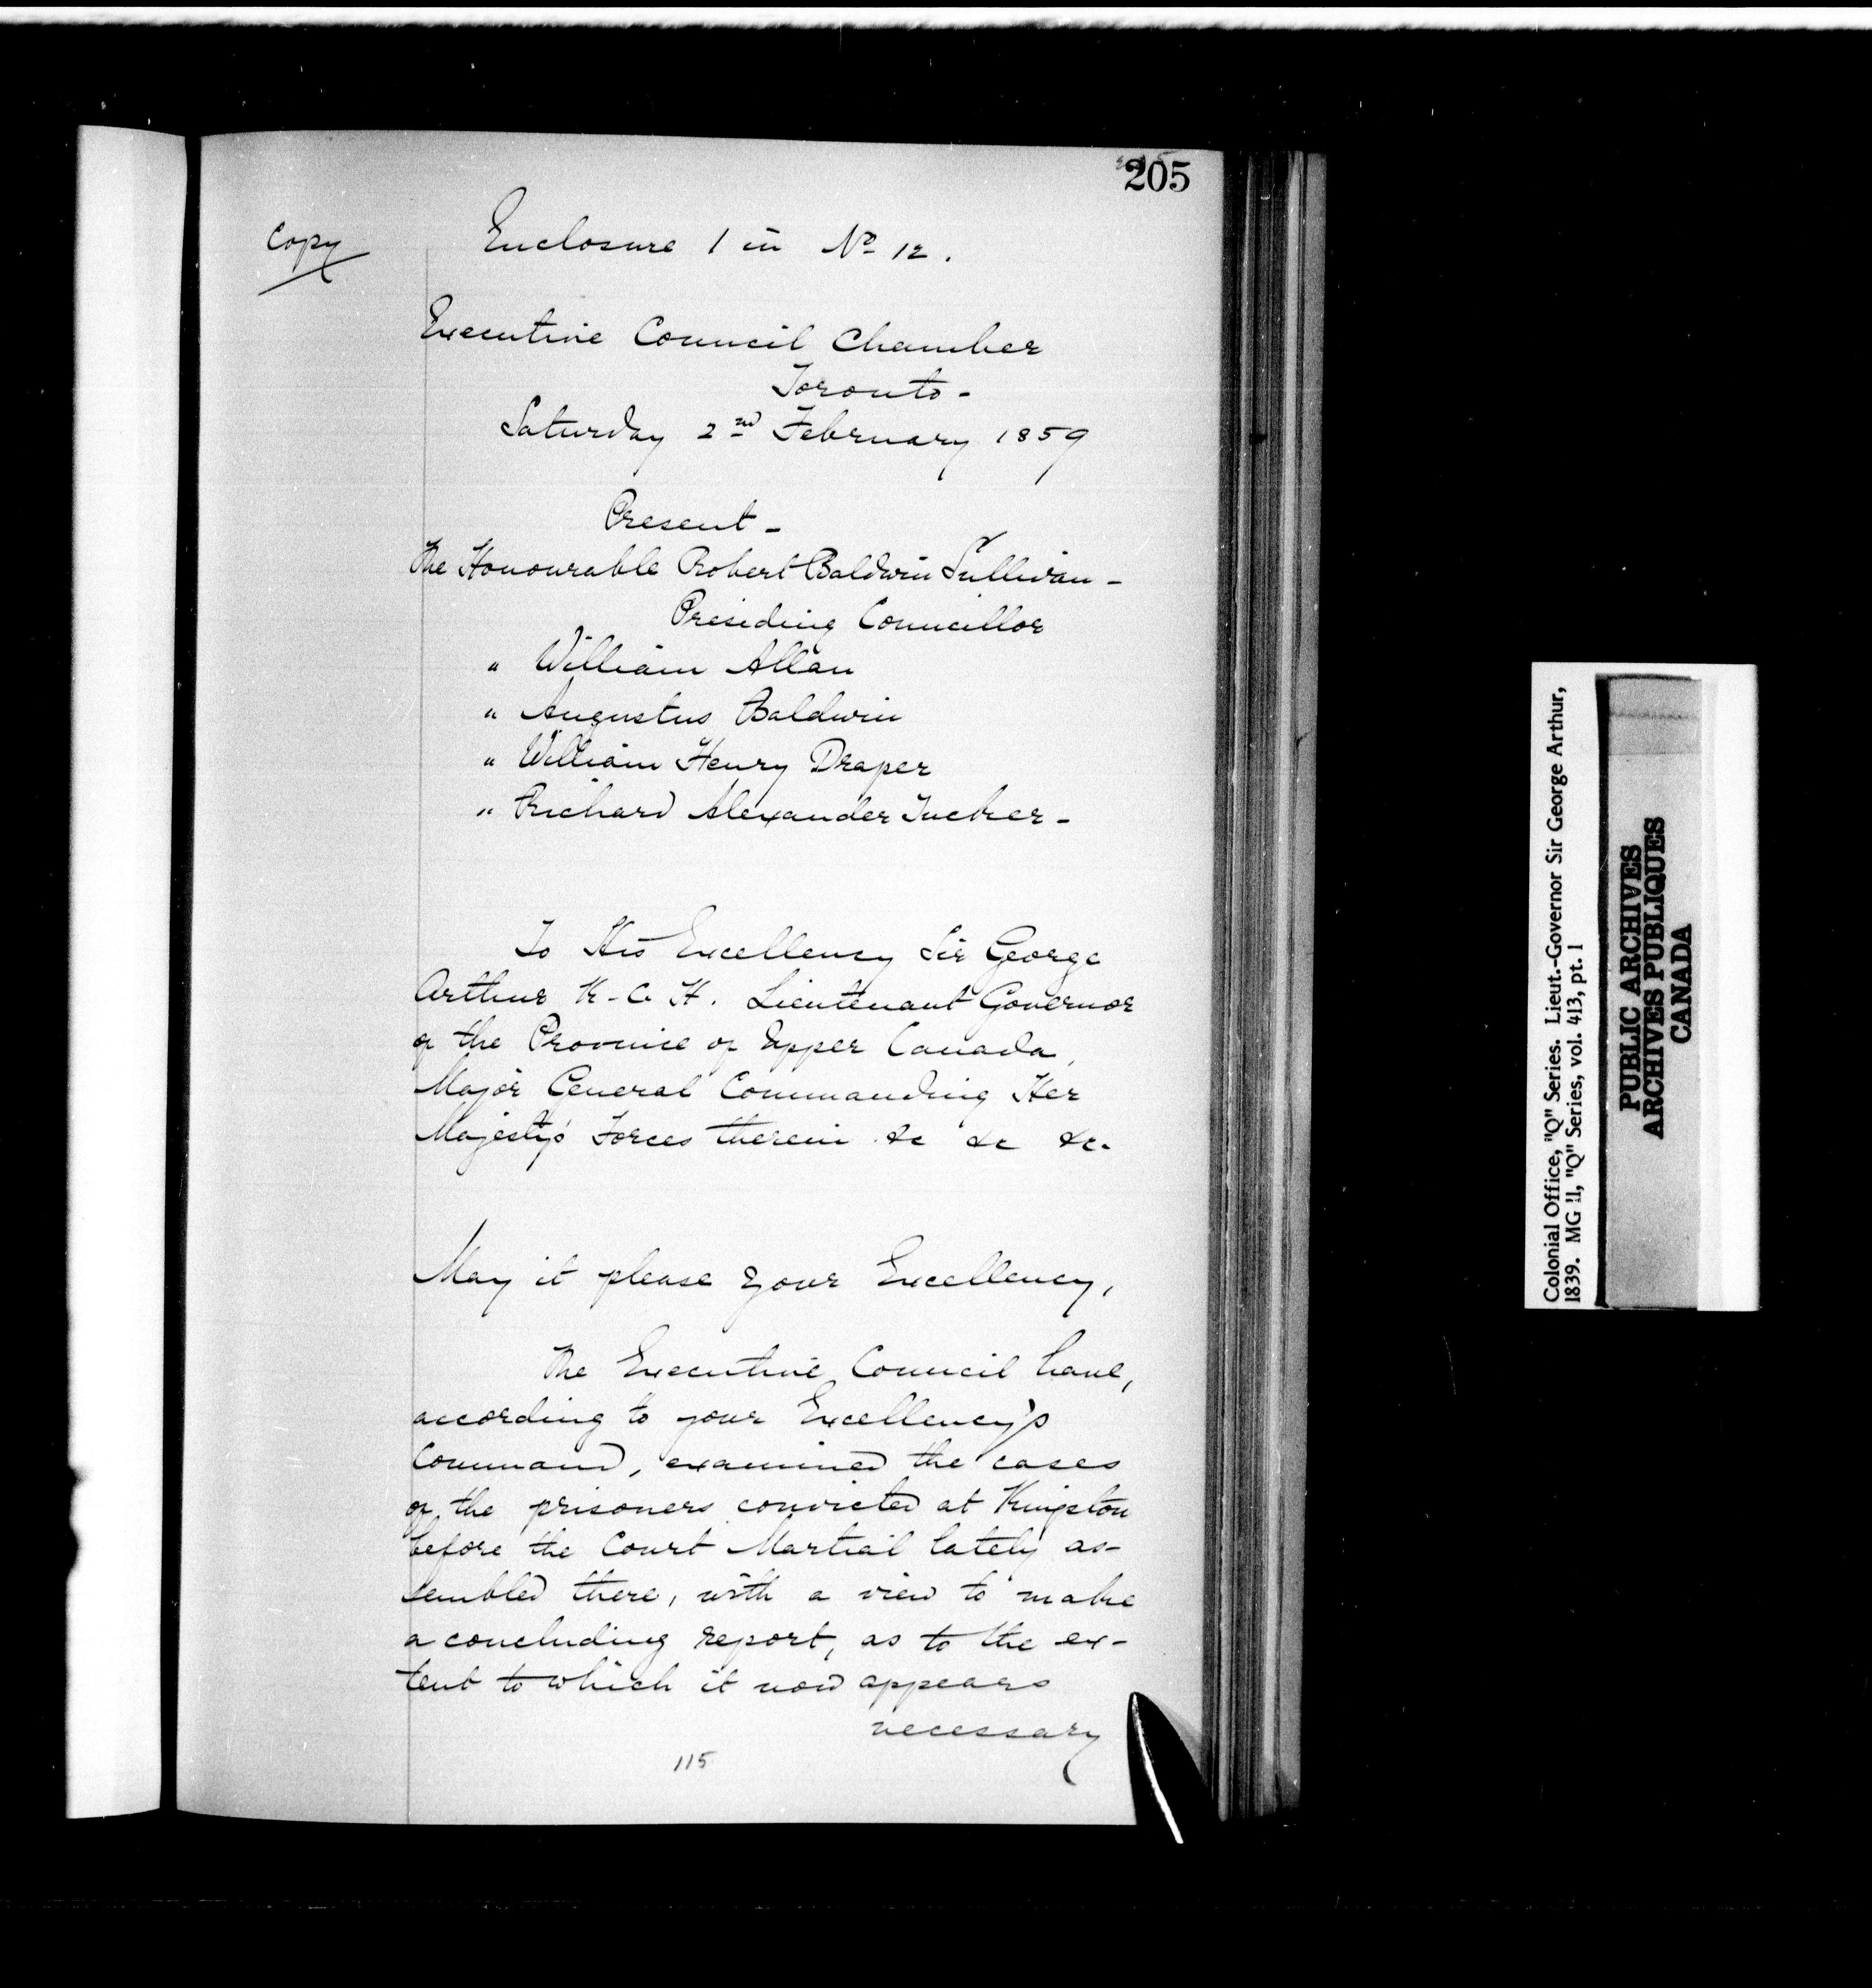 205
Copy
Enclosure 1 in No 12.
Executive Council Chamber
Toronto -
Saturday 2nd February 1859
Present -
The Honourable Robert Baldwin Sullivan -
Presiding Councillor
" William Allan
" Augustus Baldwin
" William Henry Draper
" Richard Alexander Tucker -
To His Excellency Sir George
Arthur K. C. H. Lieutenant Governor
of the Province of Upper Canada,
Major General Commanding Her
Majesty's Forces therein &c &c &c.
May it please your Excellency,
The Executive Council have,
according to your Excellency's
Command, examined the cases
of the prisoners convicted at Kingston
before the Court Martial lately as-
sembled there, with a view to make
a concluding report, as to the ex-
tent to which it now appears
necessary
115
Colonial Office, "Q" Series. Lieut.-Governor Sir George Arthur,
1839. MG 11, "Q" Series, vol. 413, pt. 1
PUBLIC ARCHIVES
ARCHIVES PUBLIQUES
CANADA